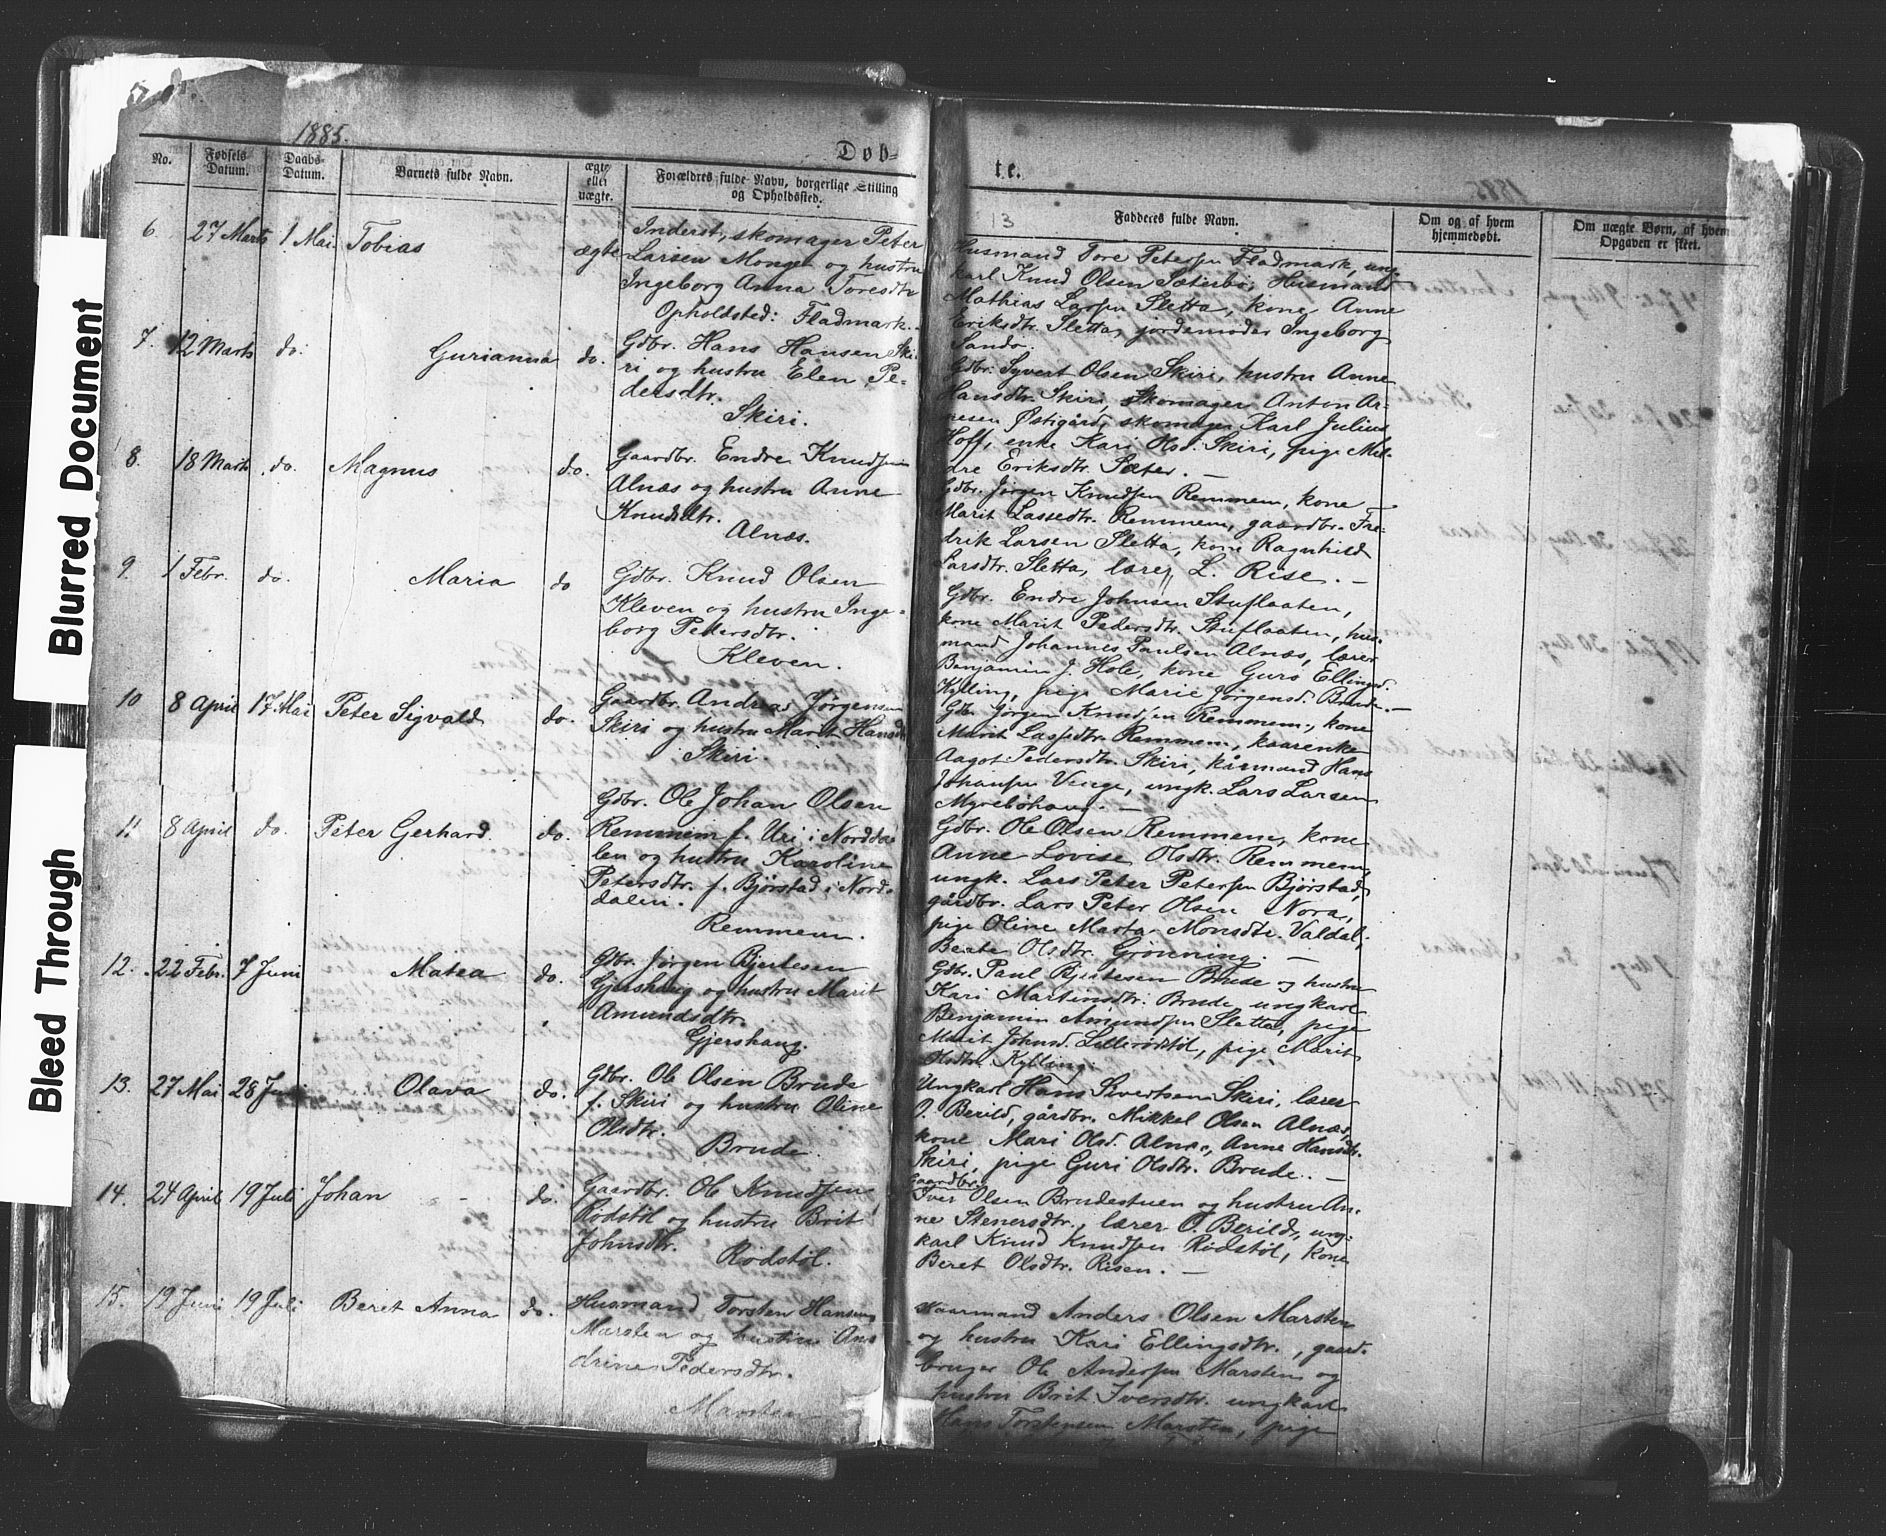 Blurred Document
Bleed Through
1885.
Døb-
te.
13
No.
Fødsels Datum.
Daabs-Datum.
Barnets fulde Navn.
ægte eller uægte.
Forældres fulde Navn, borgerlige Stilling og Opholdssted.
Fadderes fulde Navn.
Om og af hvem hjemmedøbt.
Om uægte Børn, af hvem Opgaven er skeet.
6 27 Marts 1 Mai Tobias ægte
Inderst, skomager Peter
Larsen Monget og hustru
Ingeborg Anna Toresdtr
Opholdsted: Fladmark.
Husmand Tore Petersen Fladmark, ung-
karl Knud Olsen Sæterbø, Husmand
Mathias Larsen Sletta, kone Anne
Eriksdtr. Sletta, jordemoder Ingeborg
Sando.
7. 12 Marts do. Gurianna do.
Gdbr. Hans Hansen Ski-
ri og hustru Elen Pe-
dersdtr.
Skiri.
Gdbr. Syvert Olsen Skiri, hustru Anne
Hansdtr. Skiri, skomager Anton Ar-
nesen Østigård, skomager Karl Julius
Hoff, enke Kari Olsd. Skiri, pige Mil-
dre Eriksdtr. Sæter. —
8. 18 Marts do. Magnus do.
Gaardbr. Endre Knudsen
Alnæs og hustru Anne
Knudsdtr.
Alnæs.
Gdbr. Jørgen Knudsen Remmem, kone
Marit Lassedtr. Remmem, gaardbr. Fre-
drik Larsen Sletta, kone Ragnhild
Larsdtr. Sletta, lærer L. Rise. —
9. 1 Febr. do. Maria do
Gdbr. Knud Olsen
Kleven og hustru Inge-
borg Pedersdtr.
Kleven.
Gdbr. Endre Johnsen Stuflaaten,
kone Marit Pedersdtr. Stuflaaten, hus-
mand Johannes Paulsen Alnæs, lærer
Benjamin J. Hole, kone Guro Ellingsd.
Kylling, pige Marie Jørgensd. Brude. —
10 8 April 17 Mai Peter Sigvald do.
Gaardbr. Andreas Jørgensen
Skiri og hustru Marit Hansdtr
Skiri.
Gdbr Jørgen Knudsen Remmem, kone
Marit Lassedtr. Remmem, kaarenke
Aagot Pedersdtr. Skiri, kårmand Hans
Johansen Venge, ungk. Lars Larsen
Myrebøhaug. —
11 8 April do. Peter Gerhard do.
Gdbr. Ole Johan Olsen
Remmem f. Uri i Nordda-
len og hustru Karoline
Petersdtr. f. Bjørstad i Nord-
dalen.
Remmem.
Gdbr. Ole Olsen Remmem, kone
Anne Lovise Olsdtr. Remmem,
ungk. Lars Peter Petersen Bjørstad,
gårdbr. Lars Peter Olsen Nora,
pige Oline Marta Monsdtr. Valdal,
Berte Olsdtr. Grønning. —
12. 22 Febr. 7 Juni Matea do.
Gdbr. Jørgen Bjertesen
Gjershaug og hustru Marit
Amundsdtr.
Gjershaug.
Gdbr. Paul Bjertesen Brude og hustru
Kari Martinsdtr. Brude, ungkarl
Benjamin Amundsen Sletta, pige
Marit Johnsd. Lillerødstøl, pige Marit
Olsdtr. Kylling.
13. 27 Mai 28 Juni Olava do.
Gdbr. Ole Olsen Brude
f. Skiri og hustru Oline
Olsdtr.
Brude.
Ungkarl Hans Sivertsen Skiri, lærer
O. Berild, gårdbr. Mikkel Olsen Alnæs,
kone Mari Olsd. Alnæs, Anne Hansdtr.
Skiri, pige Guri Olsdtr. Brude. —
14. 24 April 19 Juli Johan do.
Gaardbr. Ole Knudsen
Rødstøl og hustru Brit
Johnsdtr.
Rødstøl.
Gaardbr.
Iver Olsen Brudestuen og hustru An-
ne Stenersdtr., lærer O. Berild, ung-
karl Knud Knudsen Rødstøl, kone
Beret Olsdtr. Risen. —
15. 19 Juni 19 Juli Beret Anna do.
Husmand Torsten Hansen
Marsten og hustru Ane
drine Pedersdtr.
Marsten
Kaarmand Anders Olsen Marsten
og hustru Kari Ellingsdtr., gaard-
bruger Ole Andersen Marsten og
hustru Brit Iversdtr. ungkarl
Hans Torstensen Marsten, pige